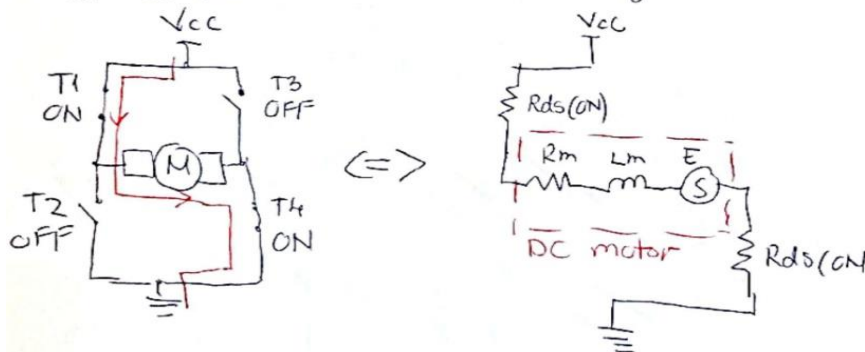 Vcc
T1
ON
T3
OFF
M
T2
OFF
T4
ON
<=>
Vcc
Rds(ON)
Rm Lm E
S
DC motor
Rds(ON